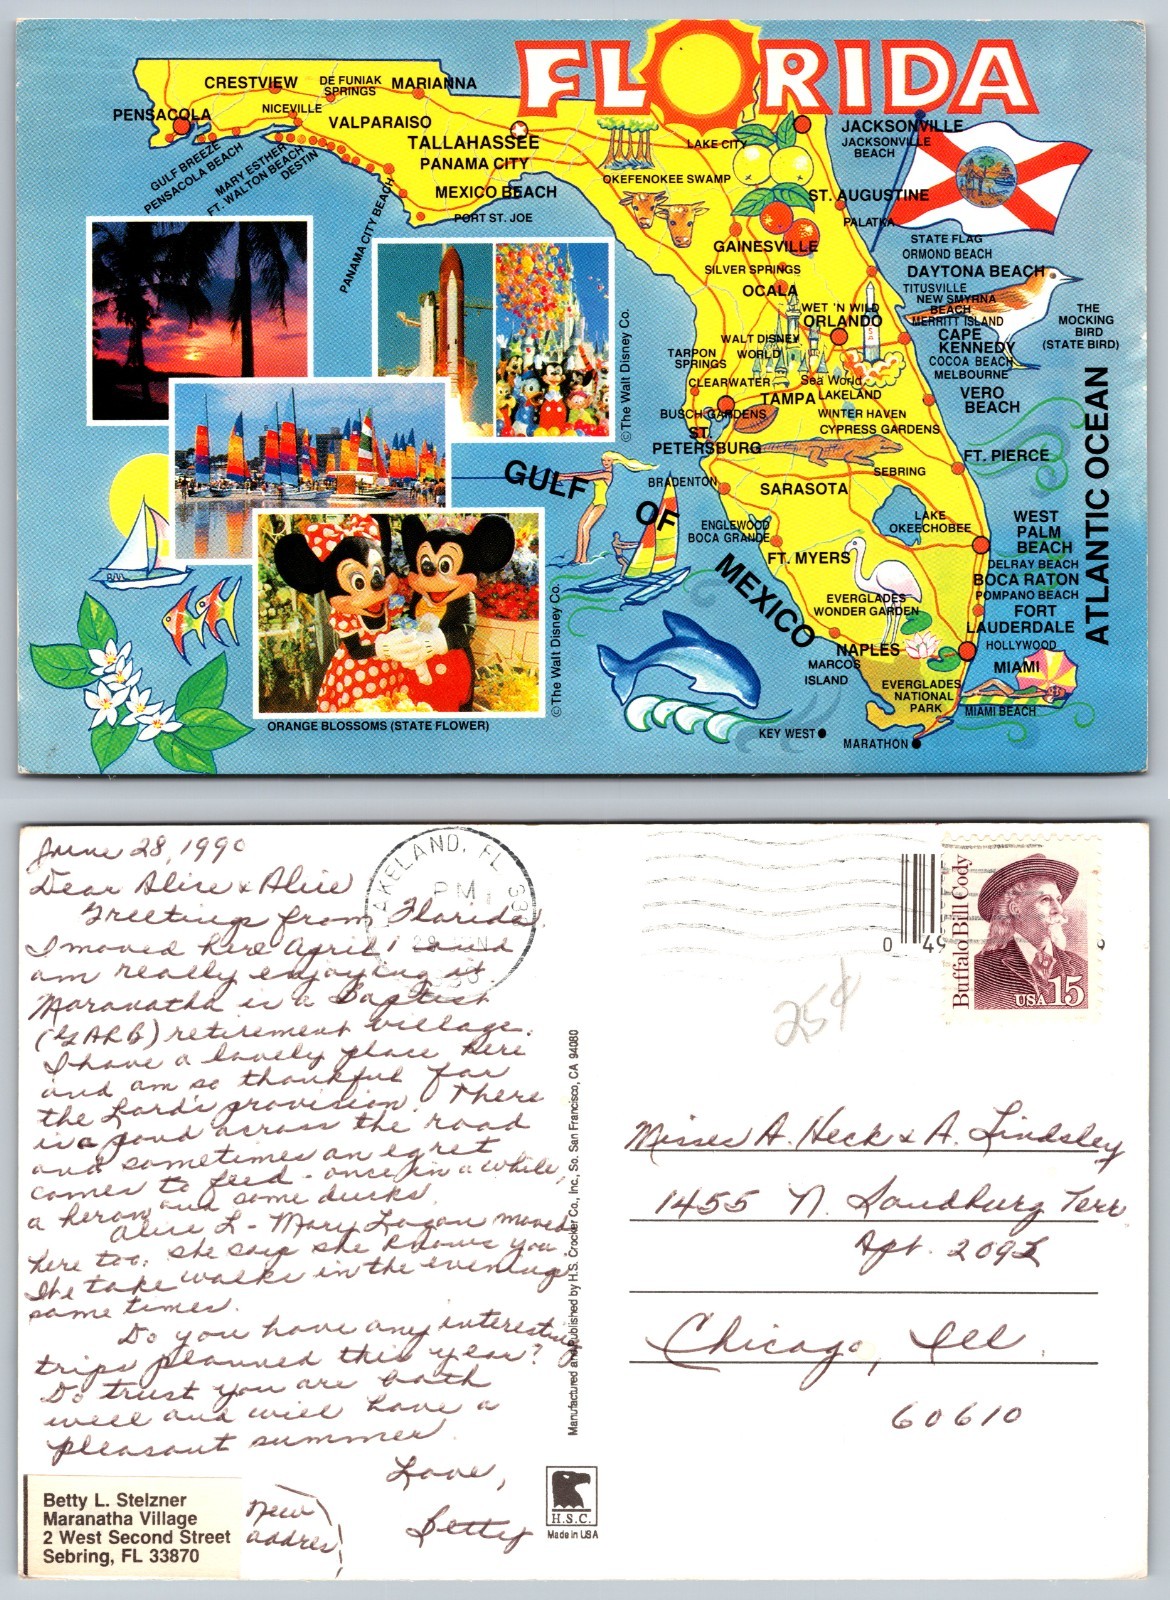 FLORIDA
CRESTVIEW
DE FUNIAK
SPRINGS
MARIANNA
PENSACOLA
NICEVILLE
VALPARAISO
TALLAHASSEE
PANAMA CITY
GULF BREEZE
PENSACOLA BEACH
MARY ESTHER
FT. WALTON BEACH
DESTIN
MEXICO BEACH
PORT ST. JOE
PANAMA CITY BEACH
LAKE CITY
OKEFENOKEE SWAMP
JACKSONVILLE
JACKSONVILLE
BEACH
ST. AUGUSTINE
PALATKA
GAINESVILLE
STATE FLAG
ORMOND BEACH
SILVER SPRINGS
DAYTONA BEACH
OCALA
TITUSVILLE
NEW SMYRNA
BEACH
WET 'N WILD
ORLANDO
MERRITT ISLAND
THE
MOCKING
BIRD
(STATE BIRD)
WALT DISNEY
WORLD
CAPE
KENNEDY
TARPON
SPRINGS
COCOA BEACH
MELBOURNE
CLEARWATER
Sea World
TAMPA
LAKELAND
VERO
BEACH
BUSCH GARDENS
WINTER HAVEN
CYPRESS GARDENS
ST.
PETERSBURG
FT. PIERCE
SEBRING
BRADENTON
SARASOTA
GULF
OF
MEXICO
ATLANTIC OCEAN
LAKE
OKEECHOBEE
WEST
PALM
BEACH
ENGLEWOOD
BOCA GRANDE
FT. MYERS
DELRAY BEACH
BOCA RATON
POMPANO BEACH
EVERGLADES
WONDER GARDEN
FORT
LAUDERDALE
NAPLES
HOLLYWOOD
MARCOS
ISLAND
MIAMI
EVERGLADES
NATIONAL
PARK
MIAMI BEACH
KEY WEST
MARATHON
© The Walt Disney Co.
© The Walt Disney Co.
ORANGE BLOSSOMS (STATE FLOWER)
USA
June 28, 1990
Dear Alice & Alice
Greetings from Florida
I moved here April 1 and
am really enjoying it
Maranatha is a Baptist
(GARB) retirement village.
I have a lovely place here
and am so thankful for
the Lord's provision. There
is a pond across the road
and sometimes an egret
comes to feed - once in a while,
a heron and some ducks.
Alice L - Mary Logan moved
here too. She says she knows you
We take walks in the evening
some times.
Do you have any interesting
trips planned this year?
Do trust you are both
well and will have a
pleasant summer.
Love,
Betty
Betty L. Stelzner
Maranatha Village
2 West Second Street
Sebring, FL 33870
New
address
LAKELAND, FL 338
PM
1990
Manufactured and Published by H.S. Crocker Co., Inc., So. San Francisco, CA 94080
H.S.C.
Made in USA
0 49
Buffalo Bill Cody
USA 15
25¢
Misses A. Heck & A. Lindsley
1455 N. Sandburg Terr
Apt. 2092
Chicago, Ill.
60610